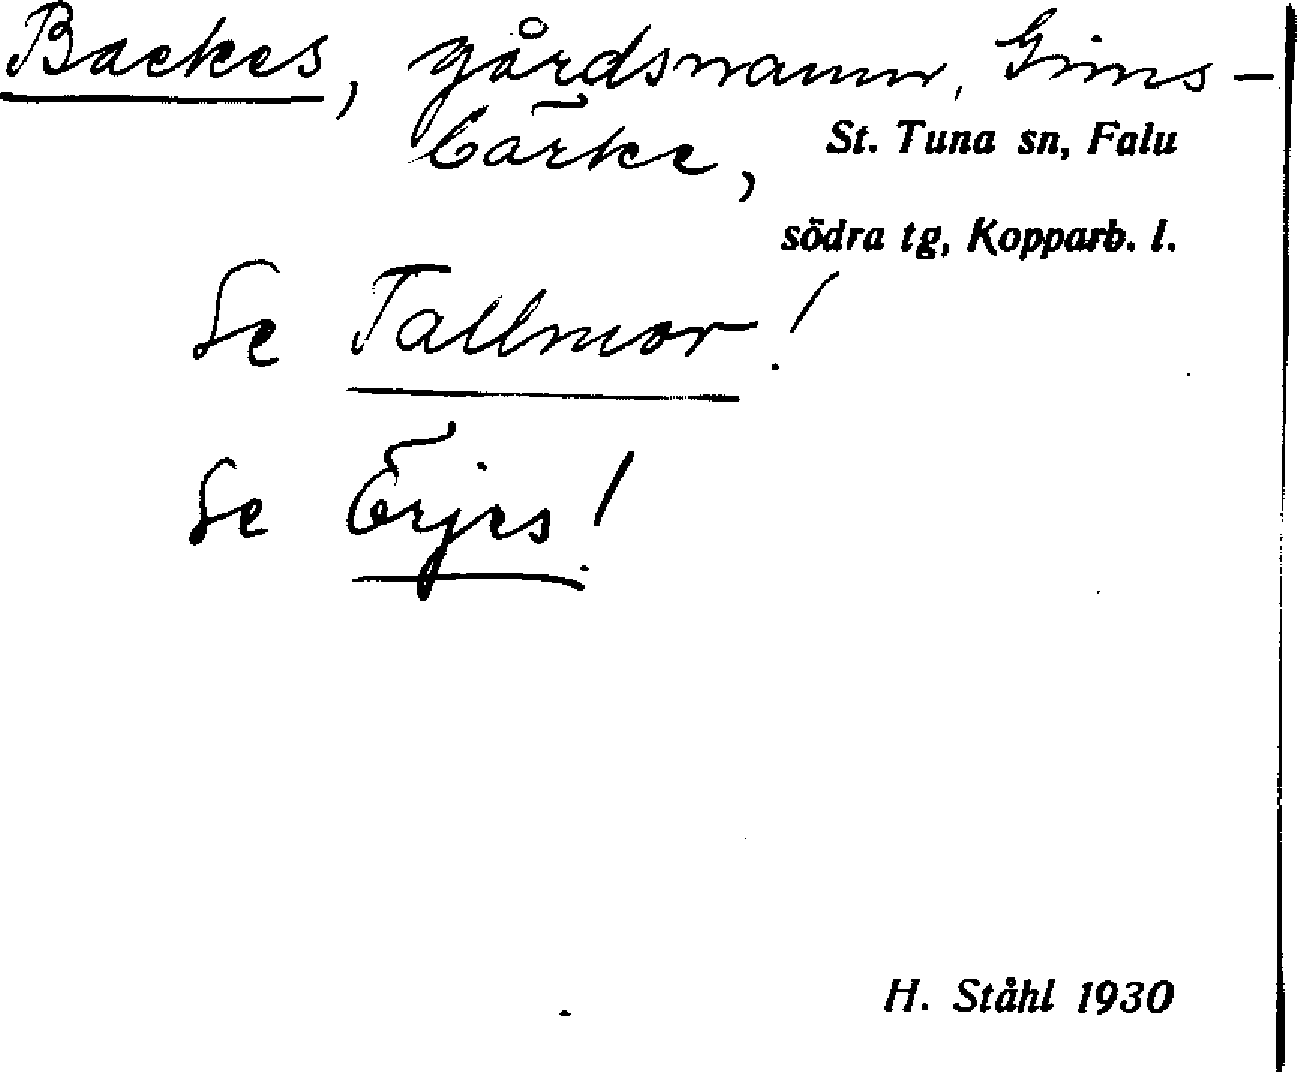 Backes, gårdsnamn, Gims-
bärke, St. Tuna sn, Falu
södra tg, Kopparb. l.
Se Tallmor!
Se Örjes!
H. Ståhl 1930